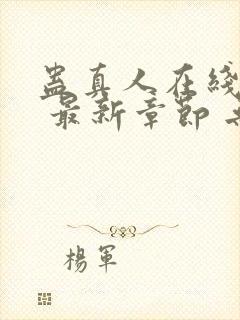 蛊真人在线
最新章節
楊軍